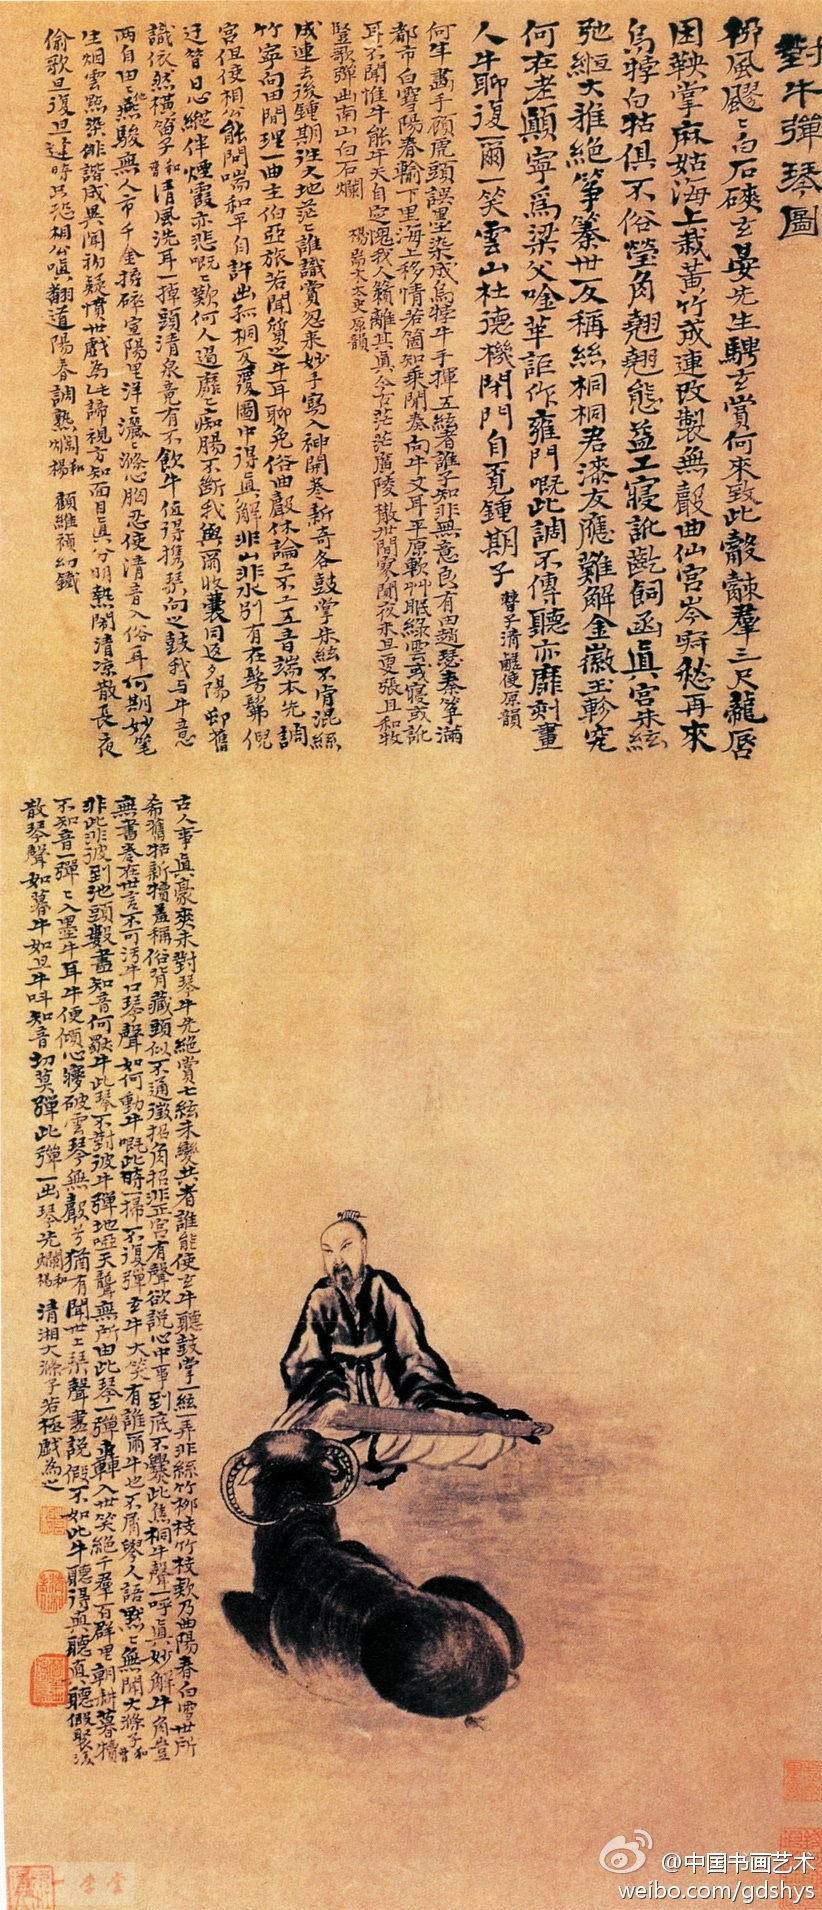 對牛彈琴圖
柳風飂飂白石磢玄晏先生騁玄賞何來致此觳觫羣三尺龍唇
困鞅掌麻姑海上栽黃竹成連改製無聲曲仙宮岑嵜愁再來
烏犉白牯俱不俗瑩角翹翹態益工寢訛齕飼函真宮朱絃
弛緪大雅絕箏篆世反稱絲桐桐君漆友應難解金徽玉軫究
何在老顛寧為梁父唫羊詎作雍門嘅此調不傳聽亦靡刻畫
人牛聊復爾一笑雲山杜德機閉門自覓鍾期子 曹子清鹺使原韻
何年畫手顧虎頭誤墨染成烏犉牛手揮五絃者誰子知非無意良有由趙瑟秦箏滿
都市白雪陽春鬻下里海上移情若箇知乘閒奏向牛
耳不聞惟牛能牛天自定愧我人籟離其真今古茫茫廣陵散世間寥闃夜未旦更張且和牧
豎歌彈出南山白石爛 楊耑木太史原韻
成連去後鍾期往大地茫茫誰識賞忽來妙手寫入神開卷新奇各鼓掌朱絃不肯混絲
竹寧向田間理一曲主伯亞旅若聞質之牛耳聊免俗曲聲休論工不工五音端本先調
宮但使相公能問喘和平自許出孤桐反覆圖中得真解非山非水別有在髣髴倪
迂昔日心縱伴煙霞亦悲嘅嘅歎何人過靡靡痴腸不斷我與爾收囊同返夕陽邨舊
識依然橫笛子 和曹
清風洗耳一掉頭清泉竟有不飲牛值得携琴向之鼓我與牛意
兩自由燕駿無人市千金摔碎宣陽里洋洋灑灑滌心胸忍使清音入俗耳何期妙笔
生烟雲點染俳諧成異聞初疑憤世戲為此諦視方知面目真分明熱鬧清凉散長夜
偷歌旦復旦逢時只恐相公嗔翻道陽春調熟爛 和楊 顧維禎幻鐵
古人事真豪爽未對琴牛先絕賞七絃未變共者誰能使玄牛聽鼓掌一絃一弄非絲竹柳枝竹枝欸乃曲陽春白雪世所
希舊牯新犢羞稱俗背藏頭似不通徵招角招非正宮有聲欲說心中事到底不爨此焦桐牛聲一呼真妙解牛角豈
無書卷在世言不可污牛口琴聲如何動牛嘅此時一掃不復彈玄牛大笑有誰爾牛也不屑學人語默默無聞大滌子 和曹
非此非彼到池頭數盡知音何獨牛此琴不對彼牛彈地啞天聾無所由此琴一彈轟入世笑絕千羣百群里朝耕暮犢
不知音一彈彈入墨牛耳牛便傾心夢破雲琴無聲兮猶有聞世上琴聲盡說假不如此牛聽得真聽真聽假聚復
散琴聲如暮牛如旦牛叫知音切莫彈此彈一出琴先爛 和楊 清湘大滌子若極戲為之
@中国书画艺术
weibo.com/gdshys